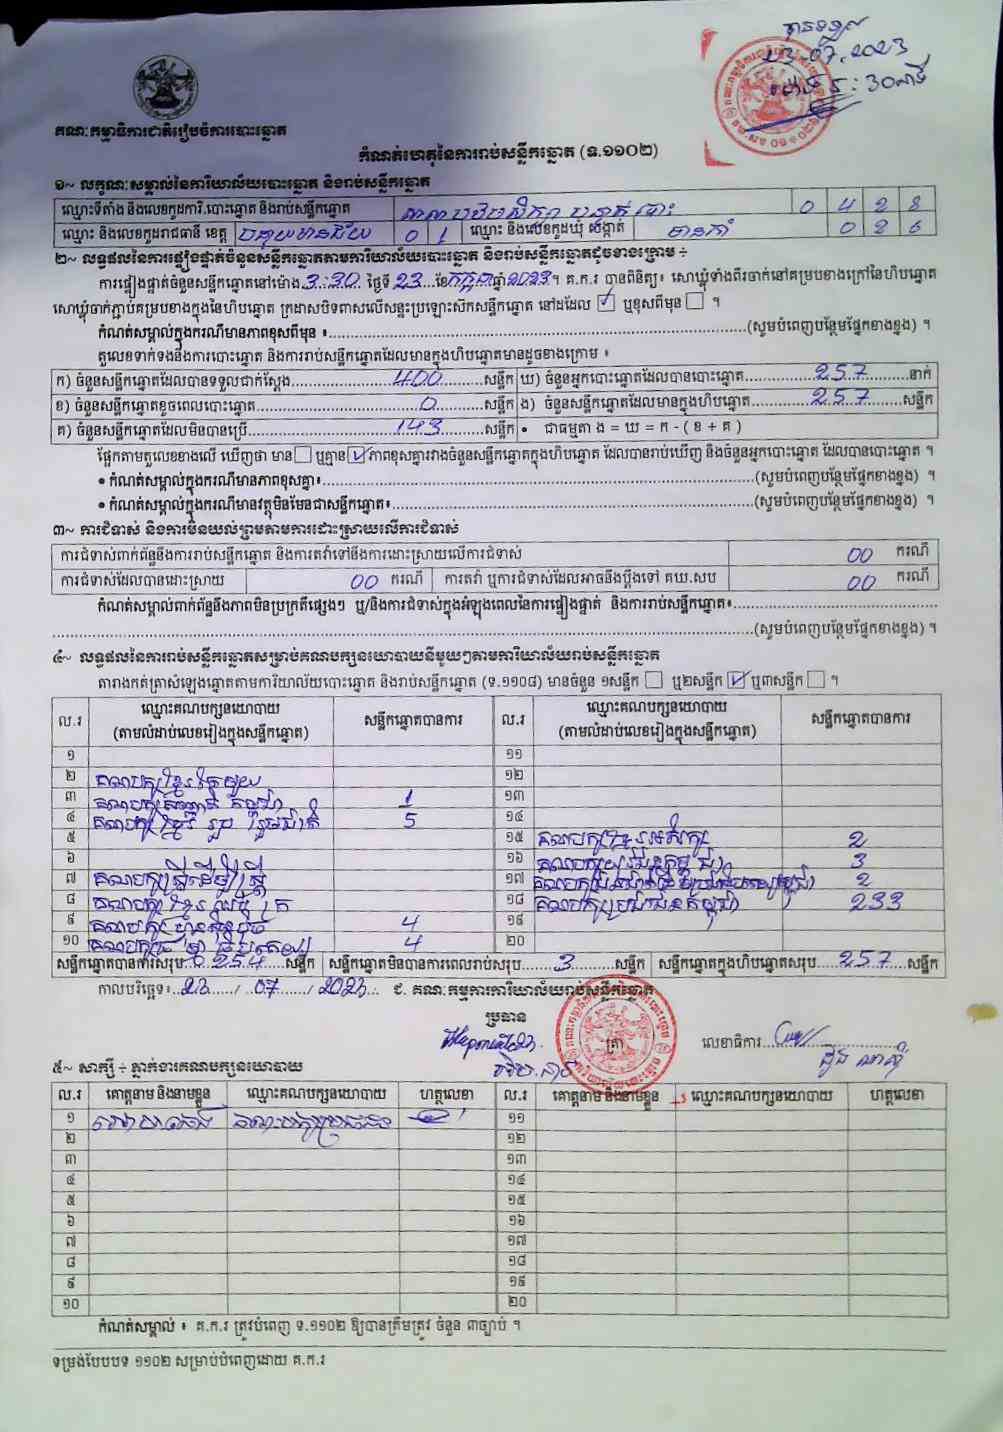 បានទទួល
23.07.2023
គណៈកម្មាធិការជាតិរៀបចំការបោះឆ្នោត
កំណត់ហេតុនៃការរាប់សន្លឹកឆ្នោត (ទ.១១០២)
១~ លក្ខណៈសម្គាល់នៃការិយាល័យបោះឆ្នោត និងរាប់សន្លឹកឆ្នោត
ឈ្មោះទីតាំង និងលេខកូដការិ.បោះឆ្នោត និងរាប់សន្លឹកឆ្នោត 0 4 2 8
ឈ្មោះ និងលេខកូដរាជធានី ខេត្ត បន្ទាយមានជ័យ 0 1 ឈ្មោះ និងលេខកូដឃុំ សង្កាត់ 0 2 6
២~ លទ្ធផលនៃការផ្ទៀងផ្ទាត់ចំនួនសន្លឹកឆ្នោតតាមការិយាល័យបោះឆ្នោត និងរាប់សន្លឹកឆ្នោតដូចខាងក្រោម ÷
ការផ្ទៀងផ្ទាត់ចំនួនសន្លឹកឆ្នោតនៅម៉ោង 3:30 ថ្ងៃទី 23 ខែ កក្កដា ឆ្នាំ 2023។ គ.ក.រ បានពិនិត្យ៖ សោឃ្លុំទាំងពីរចាក់នៅគម្របខាងក្រៅនៃហិបឆ្នោត
សោឃ្លុំចាក់ភ្ជាប់គម្របខាងក្នុងនៃហិបឆ្នោត ក្រដាសបិទពាសលើសន្ទះប្រឡោះសឹកសន្លឹកឆ្នោត នៅដដែល ☑ ឬខុសពីមុន ☐ ។
កំណត់សម្គាល់ក្នុងករណីមានភាពខុសពីមុន ៖ (សូមបំពេញបន្ថែមផ្នែកខាងខ្នង) ។
តួលេខទាក់ទងនឹងការបោះឆ្នោត និងការរាប់សន្លឹកឆ្នោតដែលមានក្នុងហិបឆ្នោតមានដូចខាងក្រោម ៖
ក) ចំនួនសន្លឹកឆ្នោតដែលបានទទួលជាក់ស្តែង 400 សន្លឹក ឃ) ចំនួនអ្នកបោះឆ្នោតដែលបានបោះឆ្នោត 257 នាក់
ខ) ចំនួនសន្លឹកឆ្នោតខូចពេលបោះឆ្នោត 0 សន្លឹក ង) ចំនួនសន្លឹកឆ្នោតដែលមានក្នុងហិបឆ្នោត 257 សន្លឹក
គ) ចំនួនសន្លឹកឆ្នោតដែលមិនបានប្រើ 143 សន្លឹក • ជាធម្មតា ង = ឃ = ក - ( ខ + គ )
ផ្អែកតាមតួលេខខាងលើ ឃើញថា មាន ☐ ឬគ្មាន ☑ ភាពខុសគ្នារវាងចំនួនសន្លឹកឆ្នោតក្នុងហិបឆ្នោត ដែលបានរាប់ឃើញ និងចំនួនអ្នកបោះឆ្នោត ដែលបានបោះឆ្នោត ។
• កំណត់សម្គាល់ក្នុងករណីមានភាពខុសគ្នា៖ (សូមបំពេញបន្ថែមផ្នែកខាងខ្នង) ។
• កំណត់សម្គាល់ក្នុងករណីមានវត្ថុមិនមែនជាសន្លឹកឆ្នោត៖ (សូមបំពេញបន្ថែមផ្នែកខាងខ្នង) ។
៣~ ការជំទាស់ និងការមិនយល់ព្រមតាមការដោះស្រាយលើការជំទាស់
ការជំទាស់ពាក់ព័ន្ធនឹងការរាប់សន្លឹកឆ្នោត និងការតវ៉ាទៅនឹងការដោះស្រាយលើការជំទាស់ 00 ករណី
ការជំទាស់ដែលបានដោះស្រាយ 00 ករណី ការតវ៉ា ឬការជំទាស់ដែលអាចនឹងប្តឹងទៅ គឃ.សប 00 ករណី
កំណត់សម្គាល់ពាក់ព័ន្ធនឹងភាពមិនប្រក្រតីផ្សេងៗ ឬ/និងការជំទាស់ក្នុងអំឡុងពេលនៃការផ្ទៀងផ្ទាត់ និងការរាប់សន្លឹកឆ្នោត៖
(សូមបំពេញបន្ថែមផ្នែកខាងខ្នង) ។
៤~ លទ្ធផលនៃការរាប់សន្លឹកឆ្នោតសម្រាប់គណបក្សនយោបាយនីមួយៗតាមការិយាល័យរាប់សន្លឹកឆ្នោត
តារាងកត់ត្រាសំឡេងឆ្នោតតាមការិយាល័យបោះឆ្នោត និងរាប់សន្លឹកឆ្នោត (ទ.១១០៨) មានចំនួន ១សន្លឹក ☐ ឬ២សន្លឹក ☑ ឬ៣សន្លឹក ☐ ។
ល.រ ឈ្មោះគណបក្សនយោបាយ (តាមលំដាប់លេខរៀងក្នុងសន្លឹកឆ្នោត) សន្លឹកឆ្នោតបានការ ល.រ ឈ្មោះគណបក្សនយោបាយ (តាមលំដាប់លេខរៀងក្នុងសន្លឹកឆ្នោត) សន្លឹកឆ្នោតបានការ
១ ១១
២ គណបក្សខ្មែរតែមួយ ១២
៣ 1 ១៣
៤ គណបក្សខ្មែរ រួបរួមជាតិ 5 ១៤
៥ ១៥ 2
៦ ១៦ 3
៧ គណបក្សស្ត្រីដើម្បីស្ត្រី ១៧ 2
៨ ១៨ គណបក្សប្រជាជនកម្ពុជា 233
៩ គណបក្ស ហ៊្វុនស៊ិនប៉ិច 4 ១៩
១០ 4 ២០
សន្លឹកឆ្នោតបានការសរុប 254 សន្លឹក សន្លឹកឆ្នោតមិនបានការពេលរាប់សរុប 3 សន្លឹក សន្លឹកឆ្នោតក្នុងហិបឆ្នោតសរុប 257 សន្លឹក
កាលបរិច្ឆេទ៖ 23 / 07 / 2023 ជ. គណៈកម្មការការិយាល័យរាប់សន្លឹកឆ្នោត
ប្រធាន
ត្រា លេខាធិការ
៥~ សាក្សី ÷ ភ្នាក់ងារគណបក្សនយោបាយ
ល.រ គោត្តនាម និងនាមខ្លួន ឈ្មោះគណបក្សនយោបាយ ហត្ថលេខា ល.រ គោត្តនាម និងនាមខ្លួន ឈ្មោះគណបក្សនយោបាយ ហត្ថលេខា
១ គណបក្សប្រជាជន ១១
២ ១២
៣ ១៣
៤ ១៤
៥ ១៥
៦ ១៦
៧ ១៧
៨ ១៨
៩ ១៩
១០ ២០
កំណត់សម្គាល់ ៖ គ.ក.រ ត្រូវបំពេញ ទ.១១០២ ឱ្យបានត្រឹមត្រូវ ចំនួន ៣ច្បាប់ ។
ទម្រង់បែបបទ ១១០២ សម្រាប់បំពេញដោយ គ.ក.រ